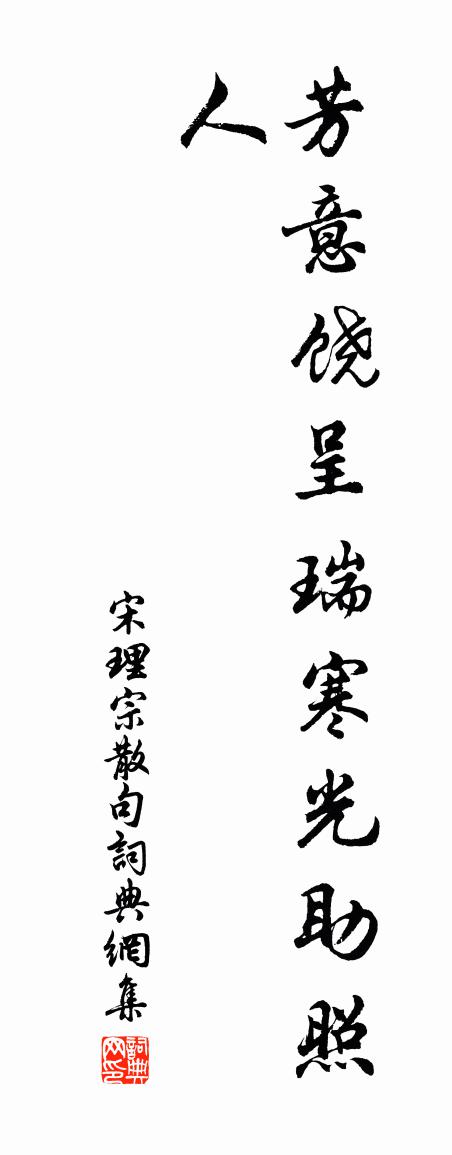 芳意饶呈瑞寒光助照
人
宋理宗散句詞典網集
詞典网印